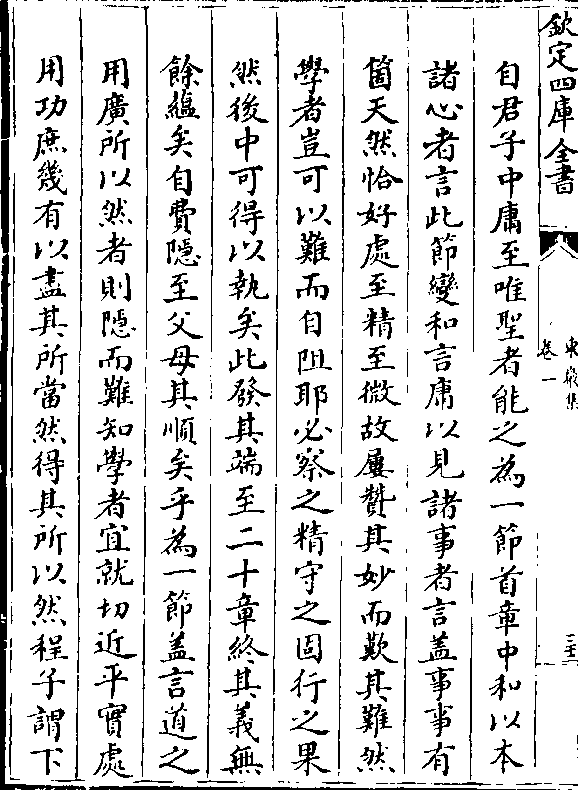 欽定四庫全書
東巖集
卷一
自君子中庸至唯聖者能之為一節首章中和以本
諸心者言此節變和言庸以見諸事者言蓋事事有
箇天然恰好處至精至微故屢贊其妙而歎其難然
學者豈可以難而自阻耶必察之精守之固行之果
然後中可得以執矣此發其端至二十章終其義無
餘蘊矣自費隱至父母其順矣乎為一節蓋言道之
用廣所以然者則隱而難知學者宜就切近平實處
用功庶幾有以盡其所當然得其所以然程子謂下